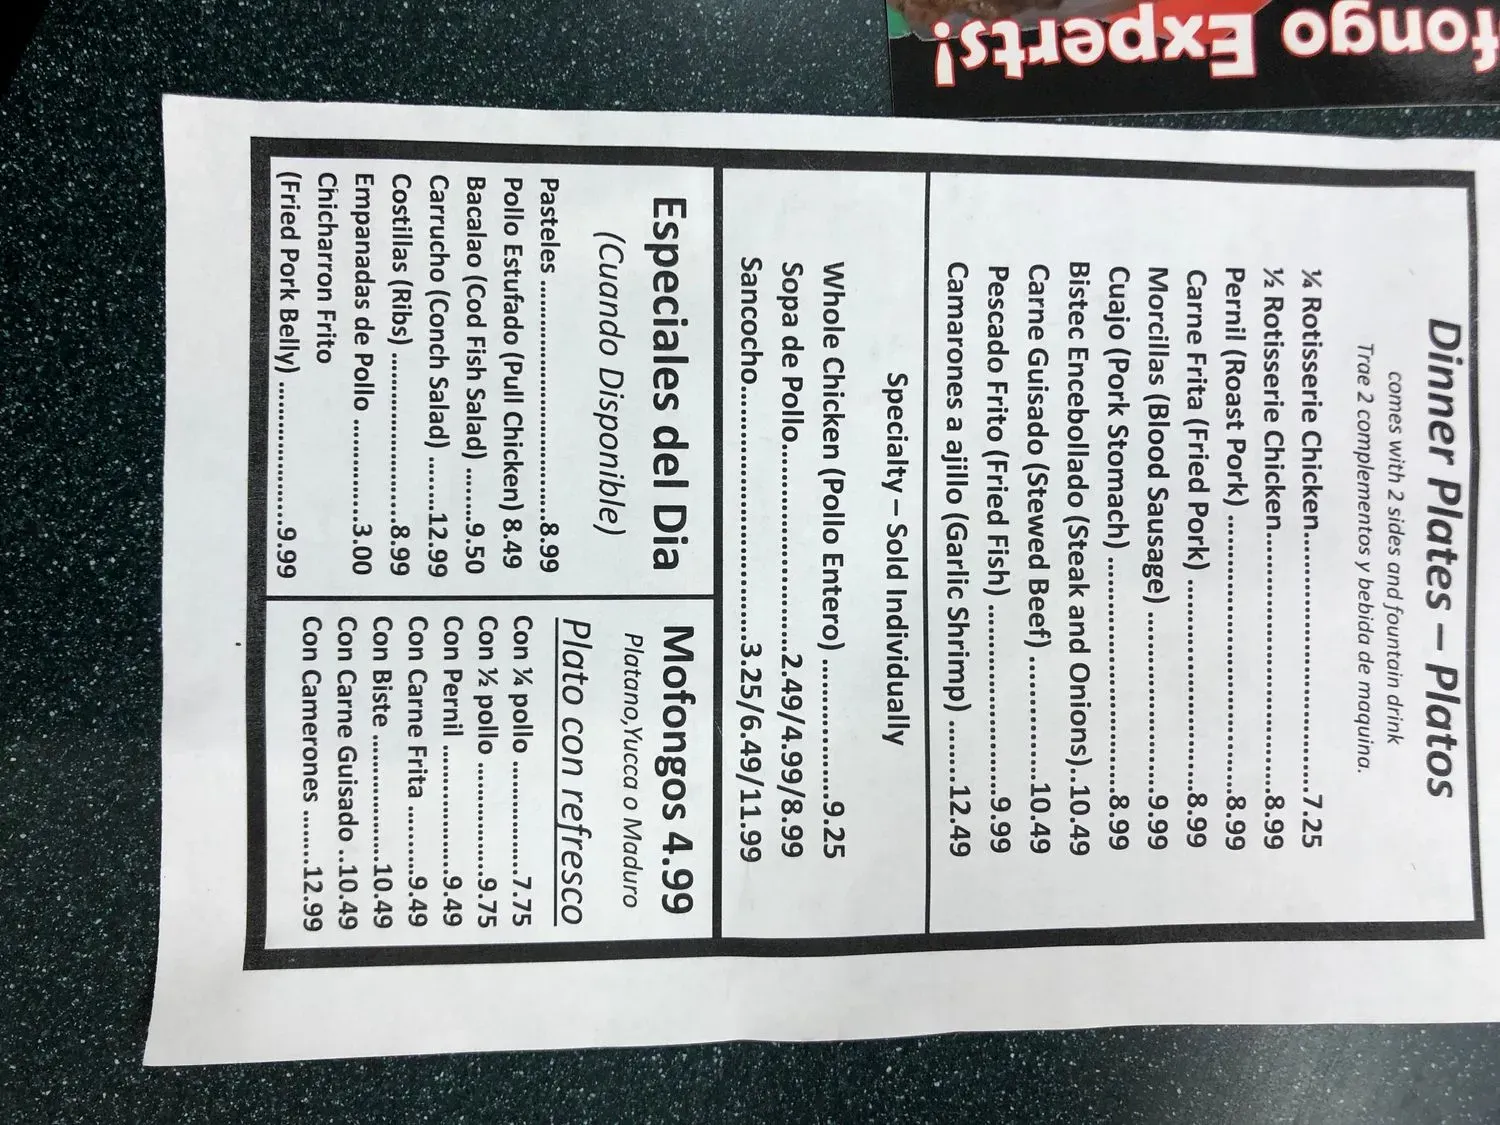 fongo Experts!
Dinner Plates – Platos
comes with 2 sides and fountain drink
Trae 2 complementos y bebida de maquina.
¼ Rotisserie Chicken..........................................7.25
½ Rotisserie Chicken..........................................8.99
Pernil (Roast Pork) ..........................................8.99
Carne Frita (Fried Pork) ..................................8.99
Morcillas (Blood Sausage) ..........................9.99
Cuajo (Pork Stomach) ..................................8.99
Bistec Encebollado (Steak and Onions)..10.49
Carne Guisado (Stewed Beef) ..............10.49
Pescado Frito (Fried Fish) ..........................9.99
Camarones a ajillo (Garlic Shrimp) .......12.49
Specialty – Sold Individually
Whole Chicken (Pollo Entero) ..................9.25
Sopa de Pollo..............................2.49/4.99/8.99
Sancocho......................................3.25/6.49/11.99
Especiales del Dia
(Cuando Disponible)
Pasteles ..........................................8.99
Pollo Estufado (Pull Chicken) 8.49
Bacalao (Cod Fish Salad) ........9.50
Carrucho (Conch Salad) ........12.99
Costillas (Ribs) ..........................8.99
Empanadas de Pollo ..............3.00
Chicharron Frito
(Fried Pork Belly) ......................9.99
Mofongos 4.99
Platano,Yucca o Maduro
Plato con refresco
Con ¼ pollo ..............7.75
Con ½ pollo ..............9.75
Con Pernil ................9.49
Con Carne Frita ..........9.49
Con Biste ..................10.49
Con Carne Guisado ..10.49
Con Camerones ........12.99